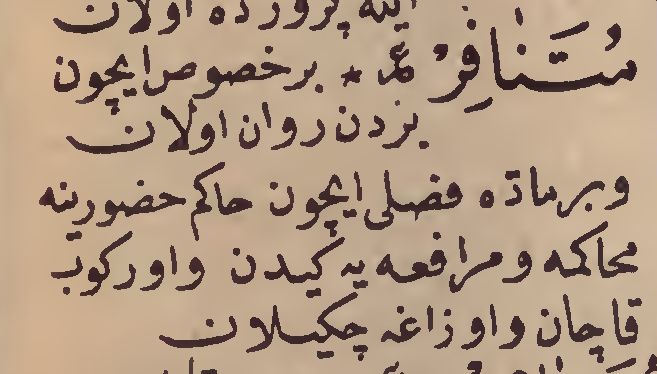 ایله پرورده اولان
مُتَنَافِرْ ع * بر خصوص ایچون
بزدن روان اولان
و بر ماده فصلی ایچون حاکم حضورینه
محاکمه و مرافعه یه کیدن و اورکوب
قاچان و اوزاغه چکیلان